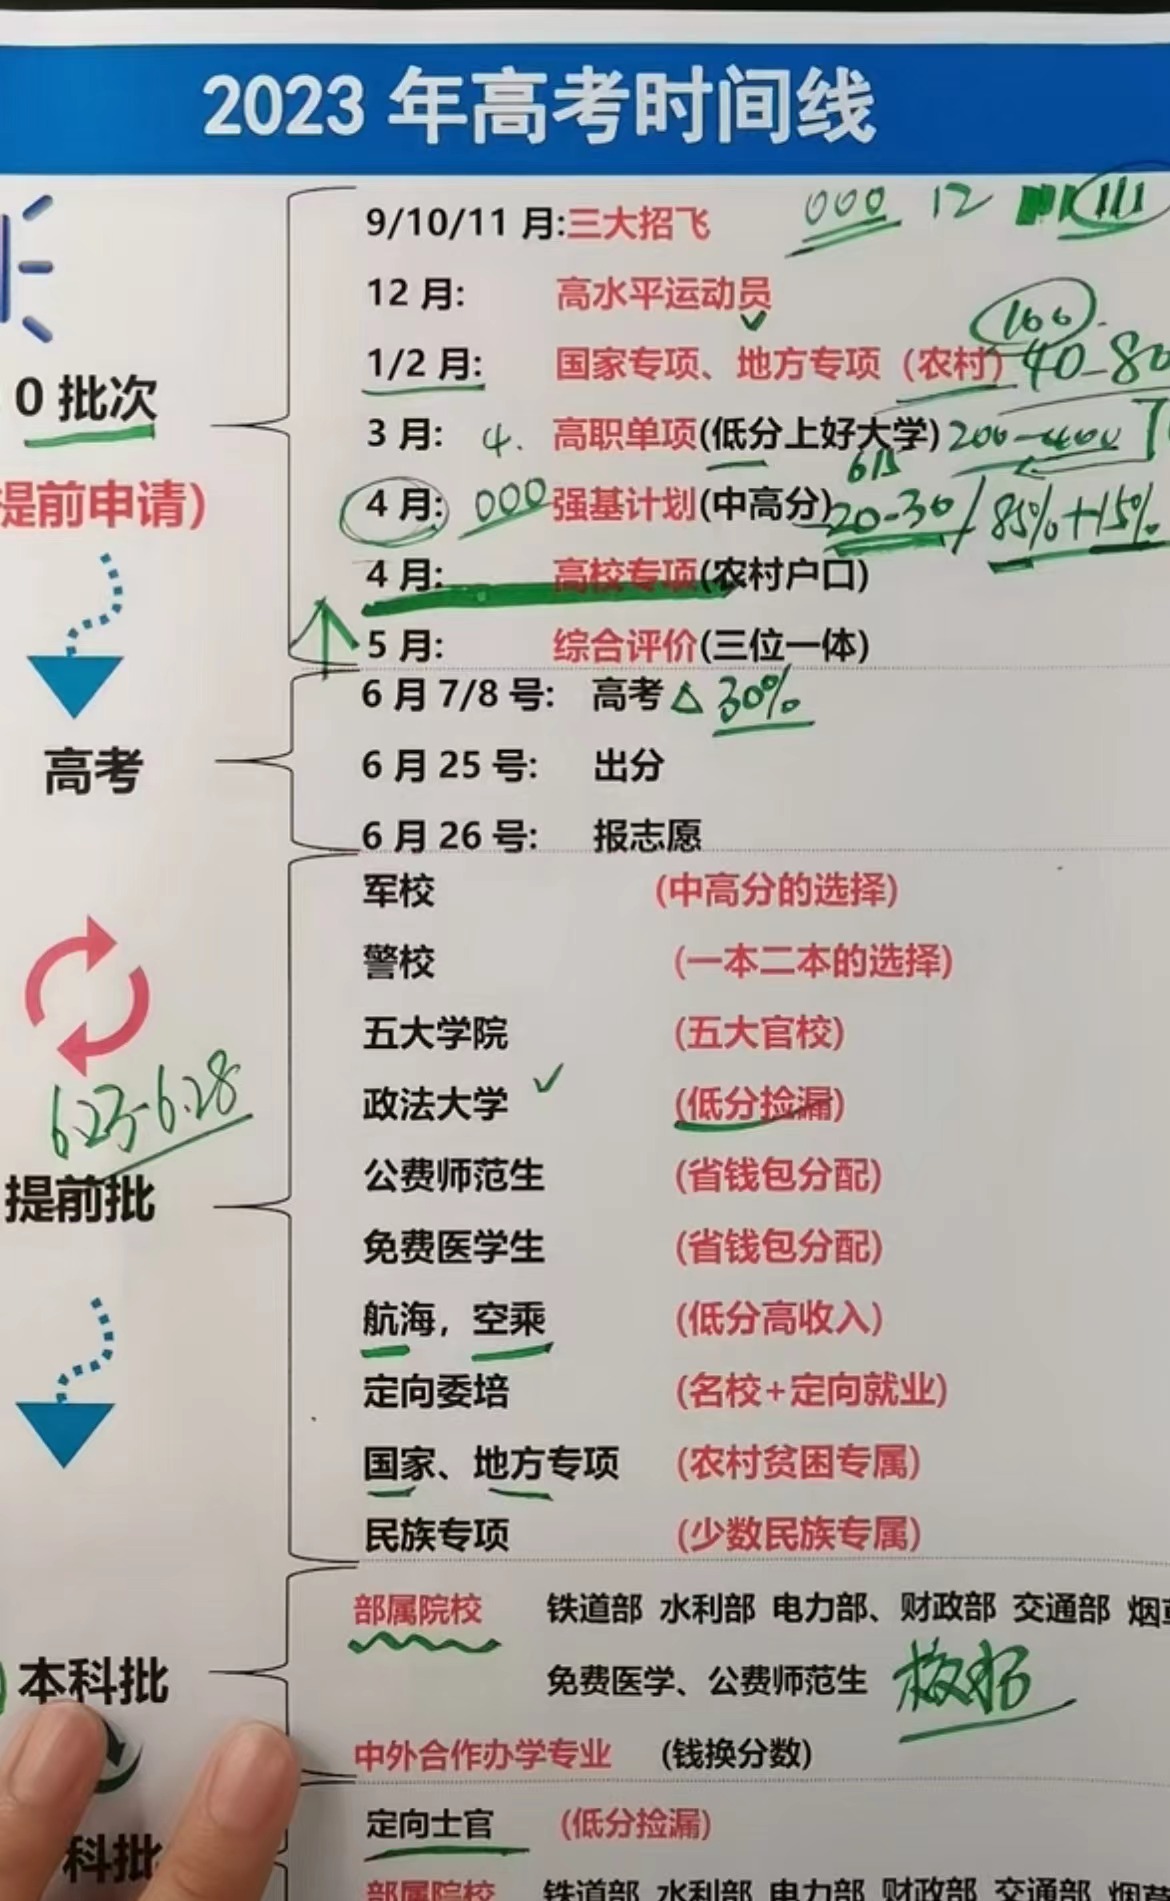 2023 年高考时间线
9/10/11 月:三大招飞 000 12 111
12 月: 高水平运动员
1/2 月: 国家专项、地方专项（农村） 40-80
100
0 批次
3 月: 4. 高职单项(低分上好大学) 200-400
提前申请）
4 月: 000 强基计划(中高分) 20-30/85%+15%
615
4 月: 高校专项(农村户口)
5 月: 综合评价(三位一体)
高考
6 月 7/8 号: 高考 30%
6 月 25 号: 出分
6 月 26 号: 报志愿
提前批
6.23-6.28
军校 (中高分的选择)
警校 (一本二本的选择)
五大学院 (五大官校)
政法大学 (低分捡漏)
公费师范生 (省钱包分配)
免费医学生 (省钱包分配)
航海，空乘 (低分高收入)
定向委培 (名校+定向就业)
国家、地方专项 (农村贫困专属)
民族专项 (少数民族专属)
本科批
部属院校 铁道部 水利部 电力部、财政部 交通部 烟草
免费医学、公费师范生 校招
中外合作办学专业 (钱换分数)
科批
定向士官 (低分捡漏)
部属院校 铁道部 水利部 电力部 财政部 交通部 烟草